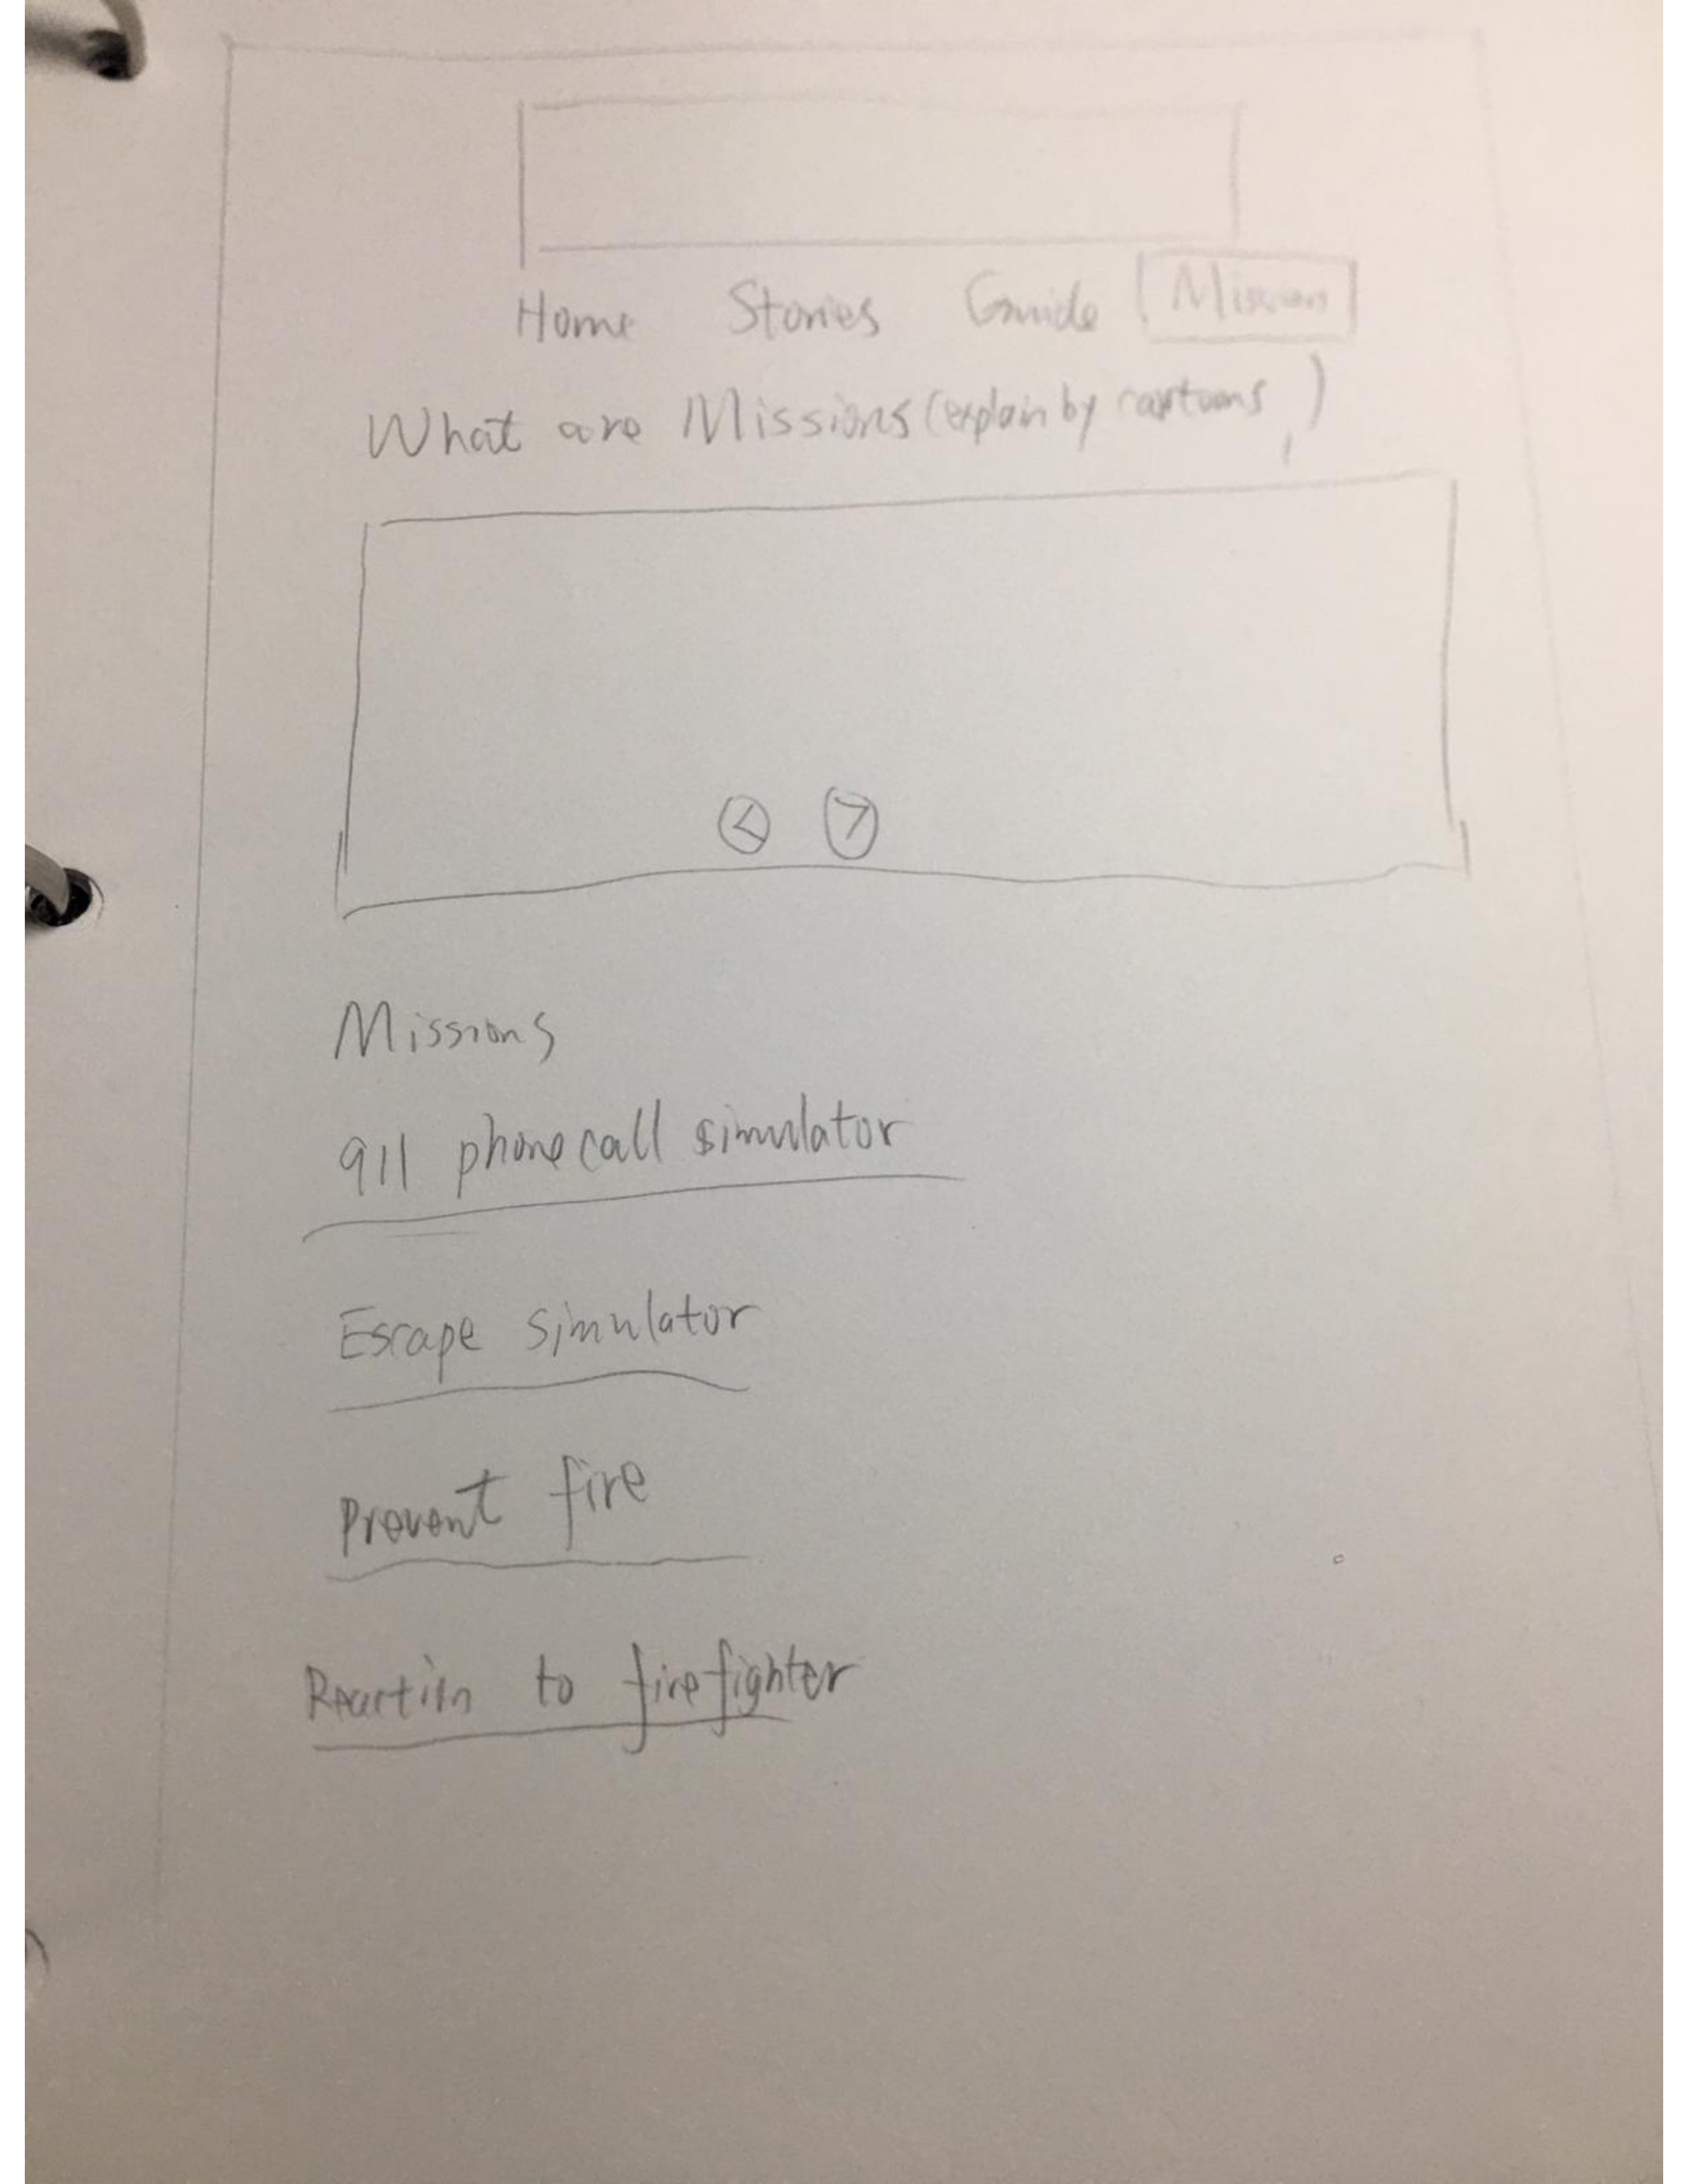 Home Stories Guide Missions
What are Missions (explain by cartoons, )
< >
Missions
911 phone call simulator
Escape simulator
Prevent fire
Reaction to firefighter